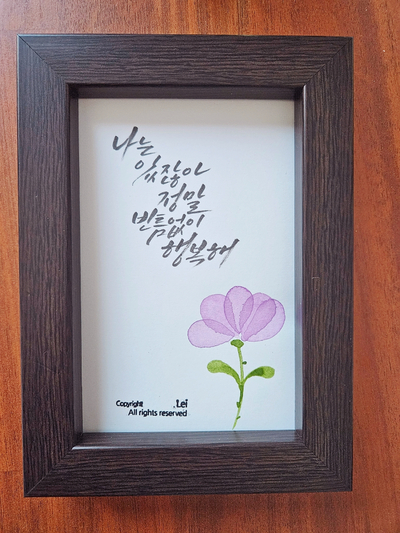 나는
있잖아
정말
빈틈없이
행복해
Copyright .Lei
All rights reserved